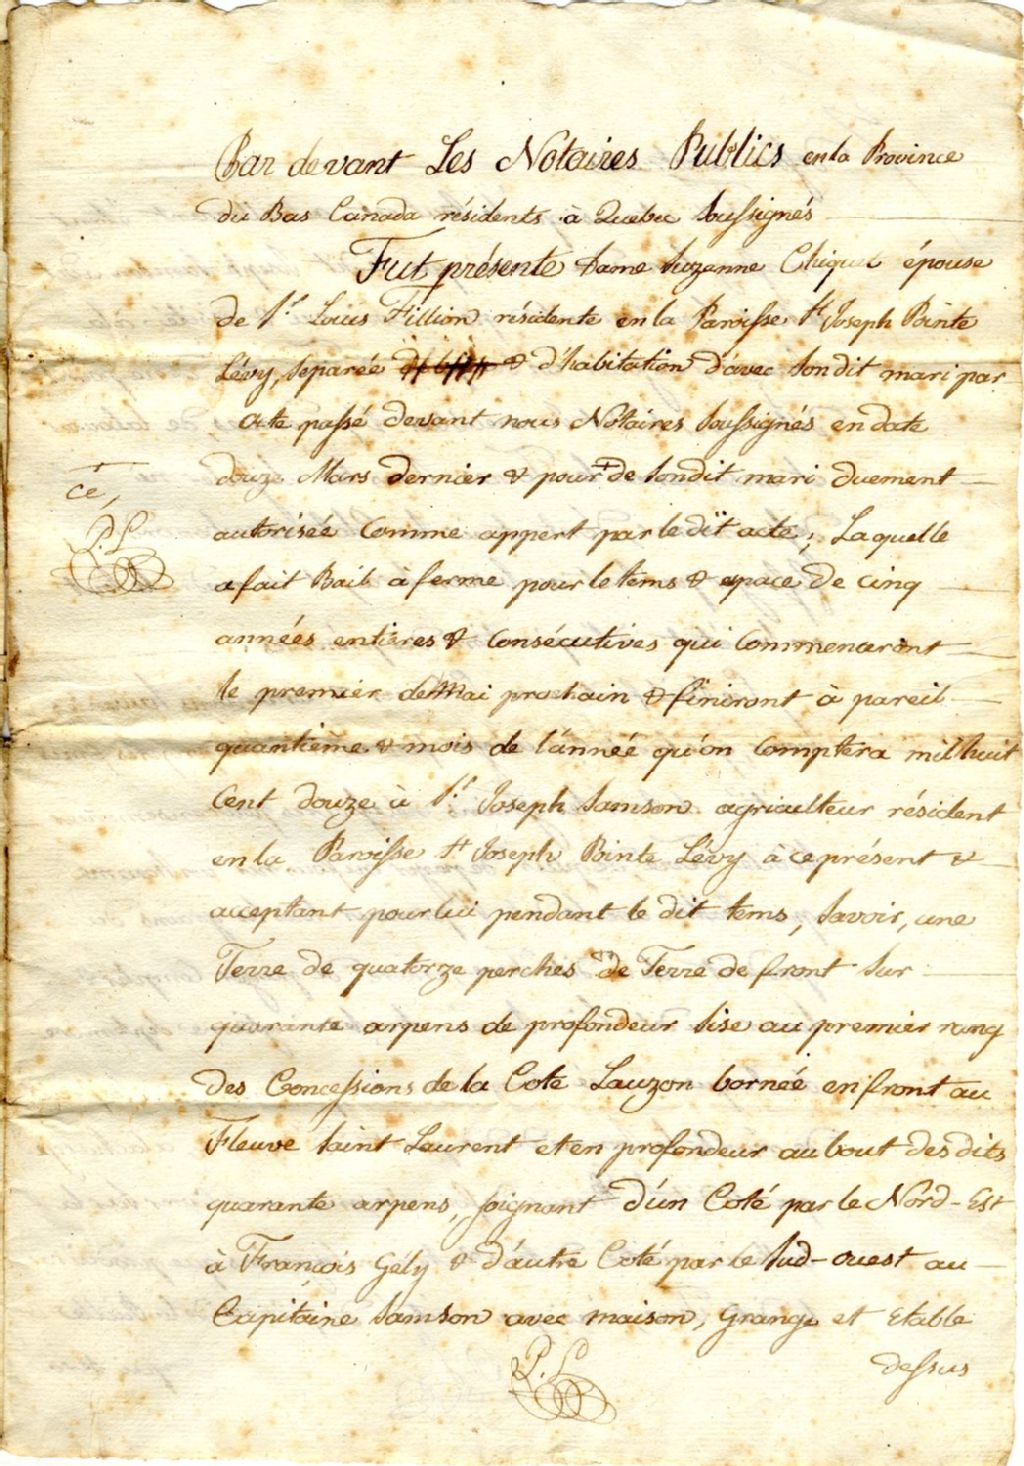 Par devant Les Notaires Publics en la Province
du Bas Canada résidents à Quebec Soussignés
Fut présente Dame Suzanne Cliquet épouse
de Sr. Louis Fillion résidente en la Paroisse St Joseph Pointe
Lévy, Separée & d'habitation d'avec Son dit mari par
Acte passé devant nous Notaires Soussignés en date
douze Mars dernier & pour + de Son dit mari duement
+
ce,
P.L.
autorisée Comme appert par le dit acte; Laquelle
a fait Bail à ferme pour le tems & espace de cinq
années entieres & Consécutives qui Commenceront
le premier de Mai prochain & finiront à pareil
quantième & mois de l'année qu'on Comptera mil huit
Cent douze à Sr. Joseph Samson agriculteur résident
en la Paroisse St Joseph Pointe Lévy à ce présent &
acceptant pour lui pendant le dit tems, Savoir, une
Terre de quatorze perches de Terre de front Sur
quarante arpens de profondeur Sise au premier rang
des Concessions de la Cote Lauzon bornée en front au
Fleuve Saint Laurent et en profondeur au bout des dits
quarante arpens, joignant d'un Coté par le Nord-Est
à François Gély & d'autre Coté par le Sud-ouest au
Capitaine Samson avec maison, Grange et Etable
dessus
P.L.